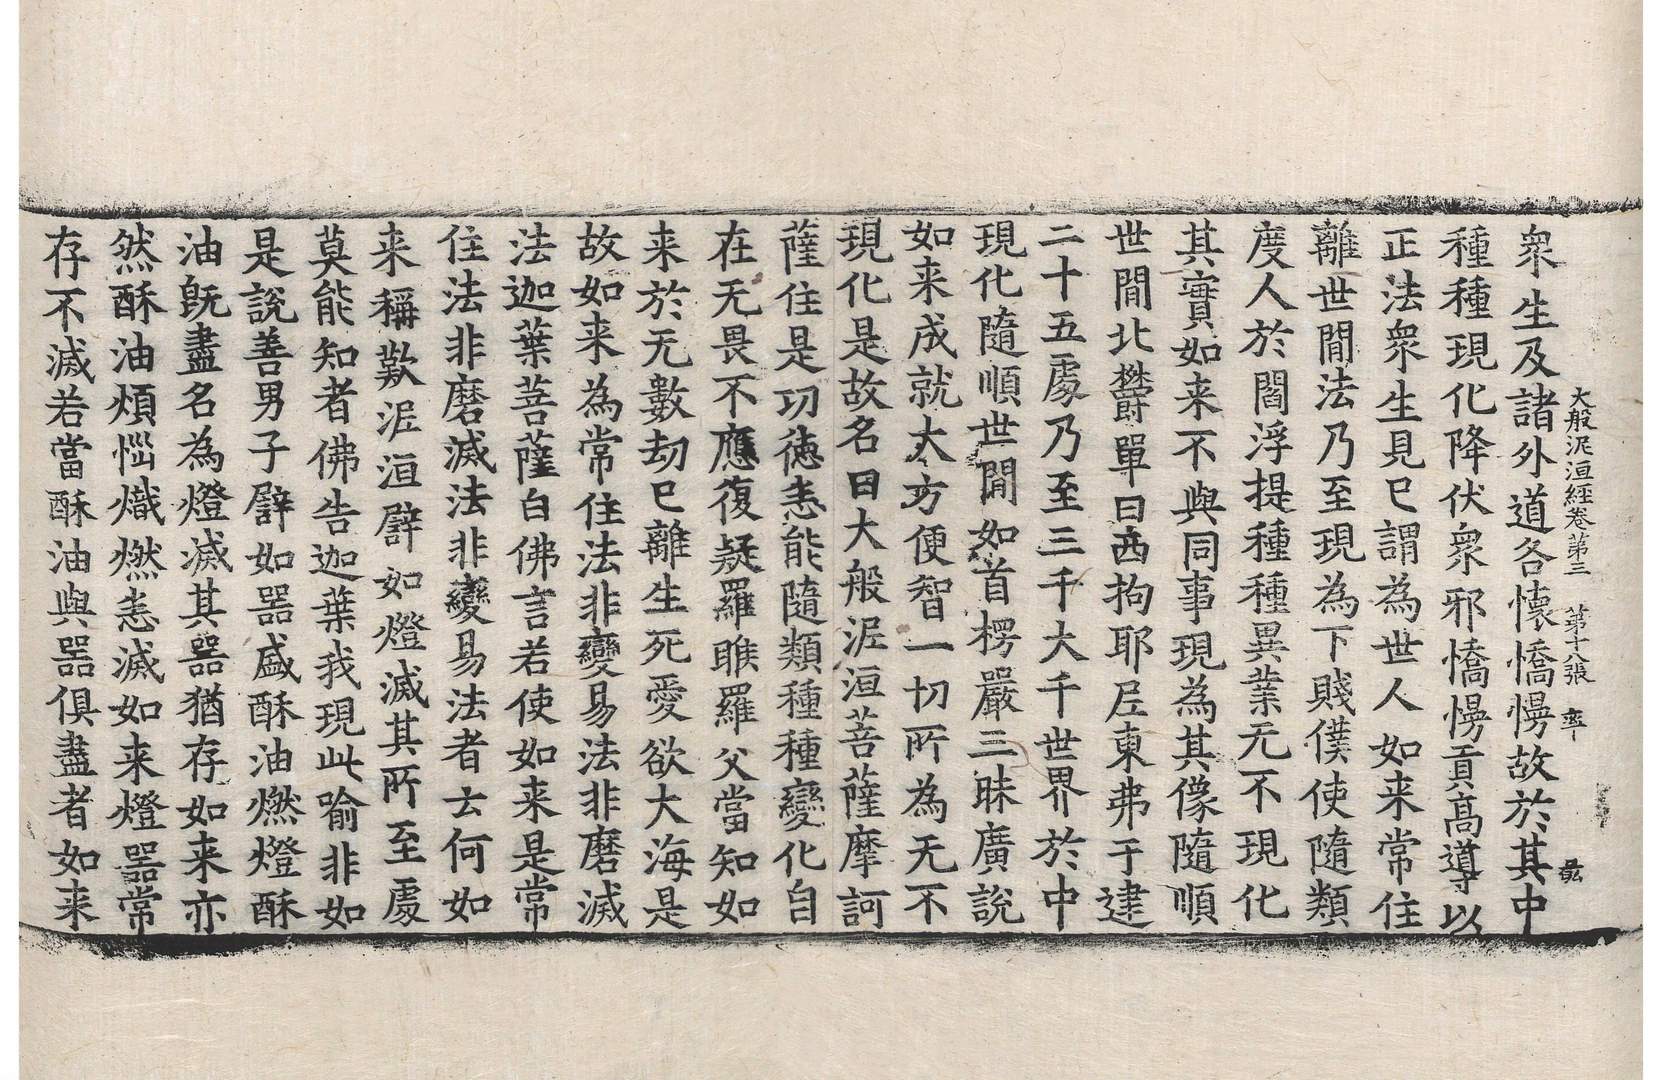 大般泥洹經卷第三 第十八張 率
衆生及諸外道各懷憍慢故於其中
種種現化降伏衆邪憍慢貢高導以
正法衆生見已謂為世人如来常住
離世閒法乃至現為下賤僕使隨類
度人於閻浮提種種異業无不現化
其實如来不與同事現為其像隨順
世閒北欝單曰西拘耶尼東弗于逮
二十五處乃至三千大千世界於中
現化隨順世閒如首楞嚴三昧廣說
如来成就大方便智一切所為无不
現化是故名曰大般泥洹菩薩摩訶
薩住是功德悉能隨類種種變化自
在无畏不應復疑羅睺羅父當知如
来於无數劫已離生死愛欲大海是
故如来為常住法非變易法非磨滅
法迦葉菩薩白佛言若使如来是常
住法非磨滅法非變易法者云何如
来稱歎泥洹譬如燈滅其所至處
莫能知者佛告迦葉我現此喻非如
是說善男子譬如器盛酥油燃燈酥
油旣盡名為燈滅其器猶存如来亦
然酥油煩惱熾燃悉滅如来燈器常
存不滅若當酥油與器俱盡者如来